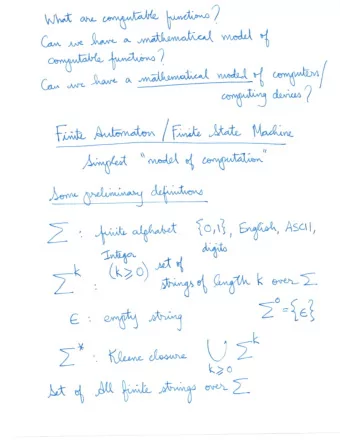 What are computable functions?
Can we have a mathematical model of
computable functions?
Can we have a mathematical model of computers/
computing devices?
Finite Automaton / Finite State Machine
Simplest "model of computation"
Some preliminary definitions
Σ : finite alphabet {0,1}, English, ASCII,
digits
Integer
Σ^k : (k⩾0) set of
strings of length k over Σ
ϵ : empty string Σ^0 = {ϵ}
Σ* : Kleene closure ⋃_{k⩾0} Σ^k
Set of All finite strings over Σ